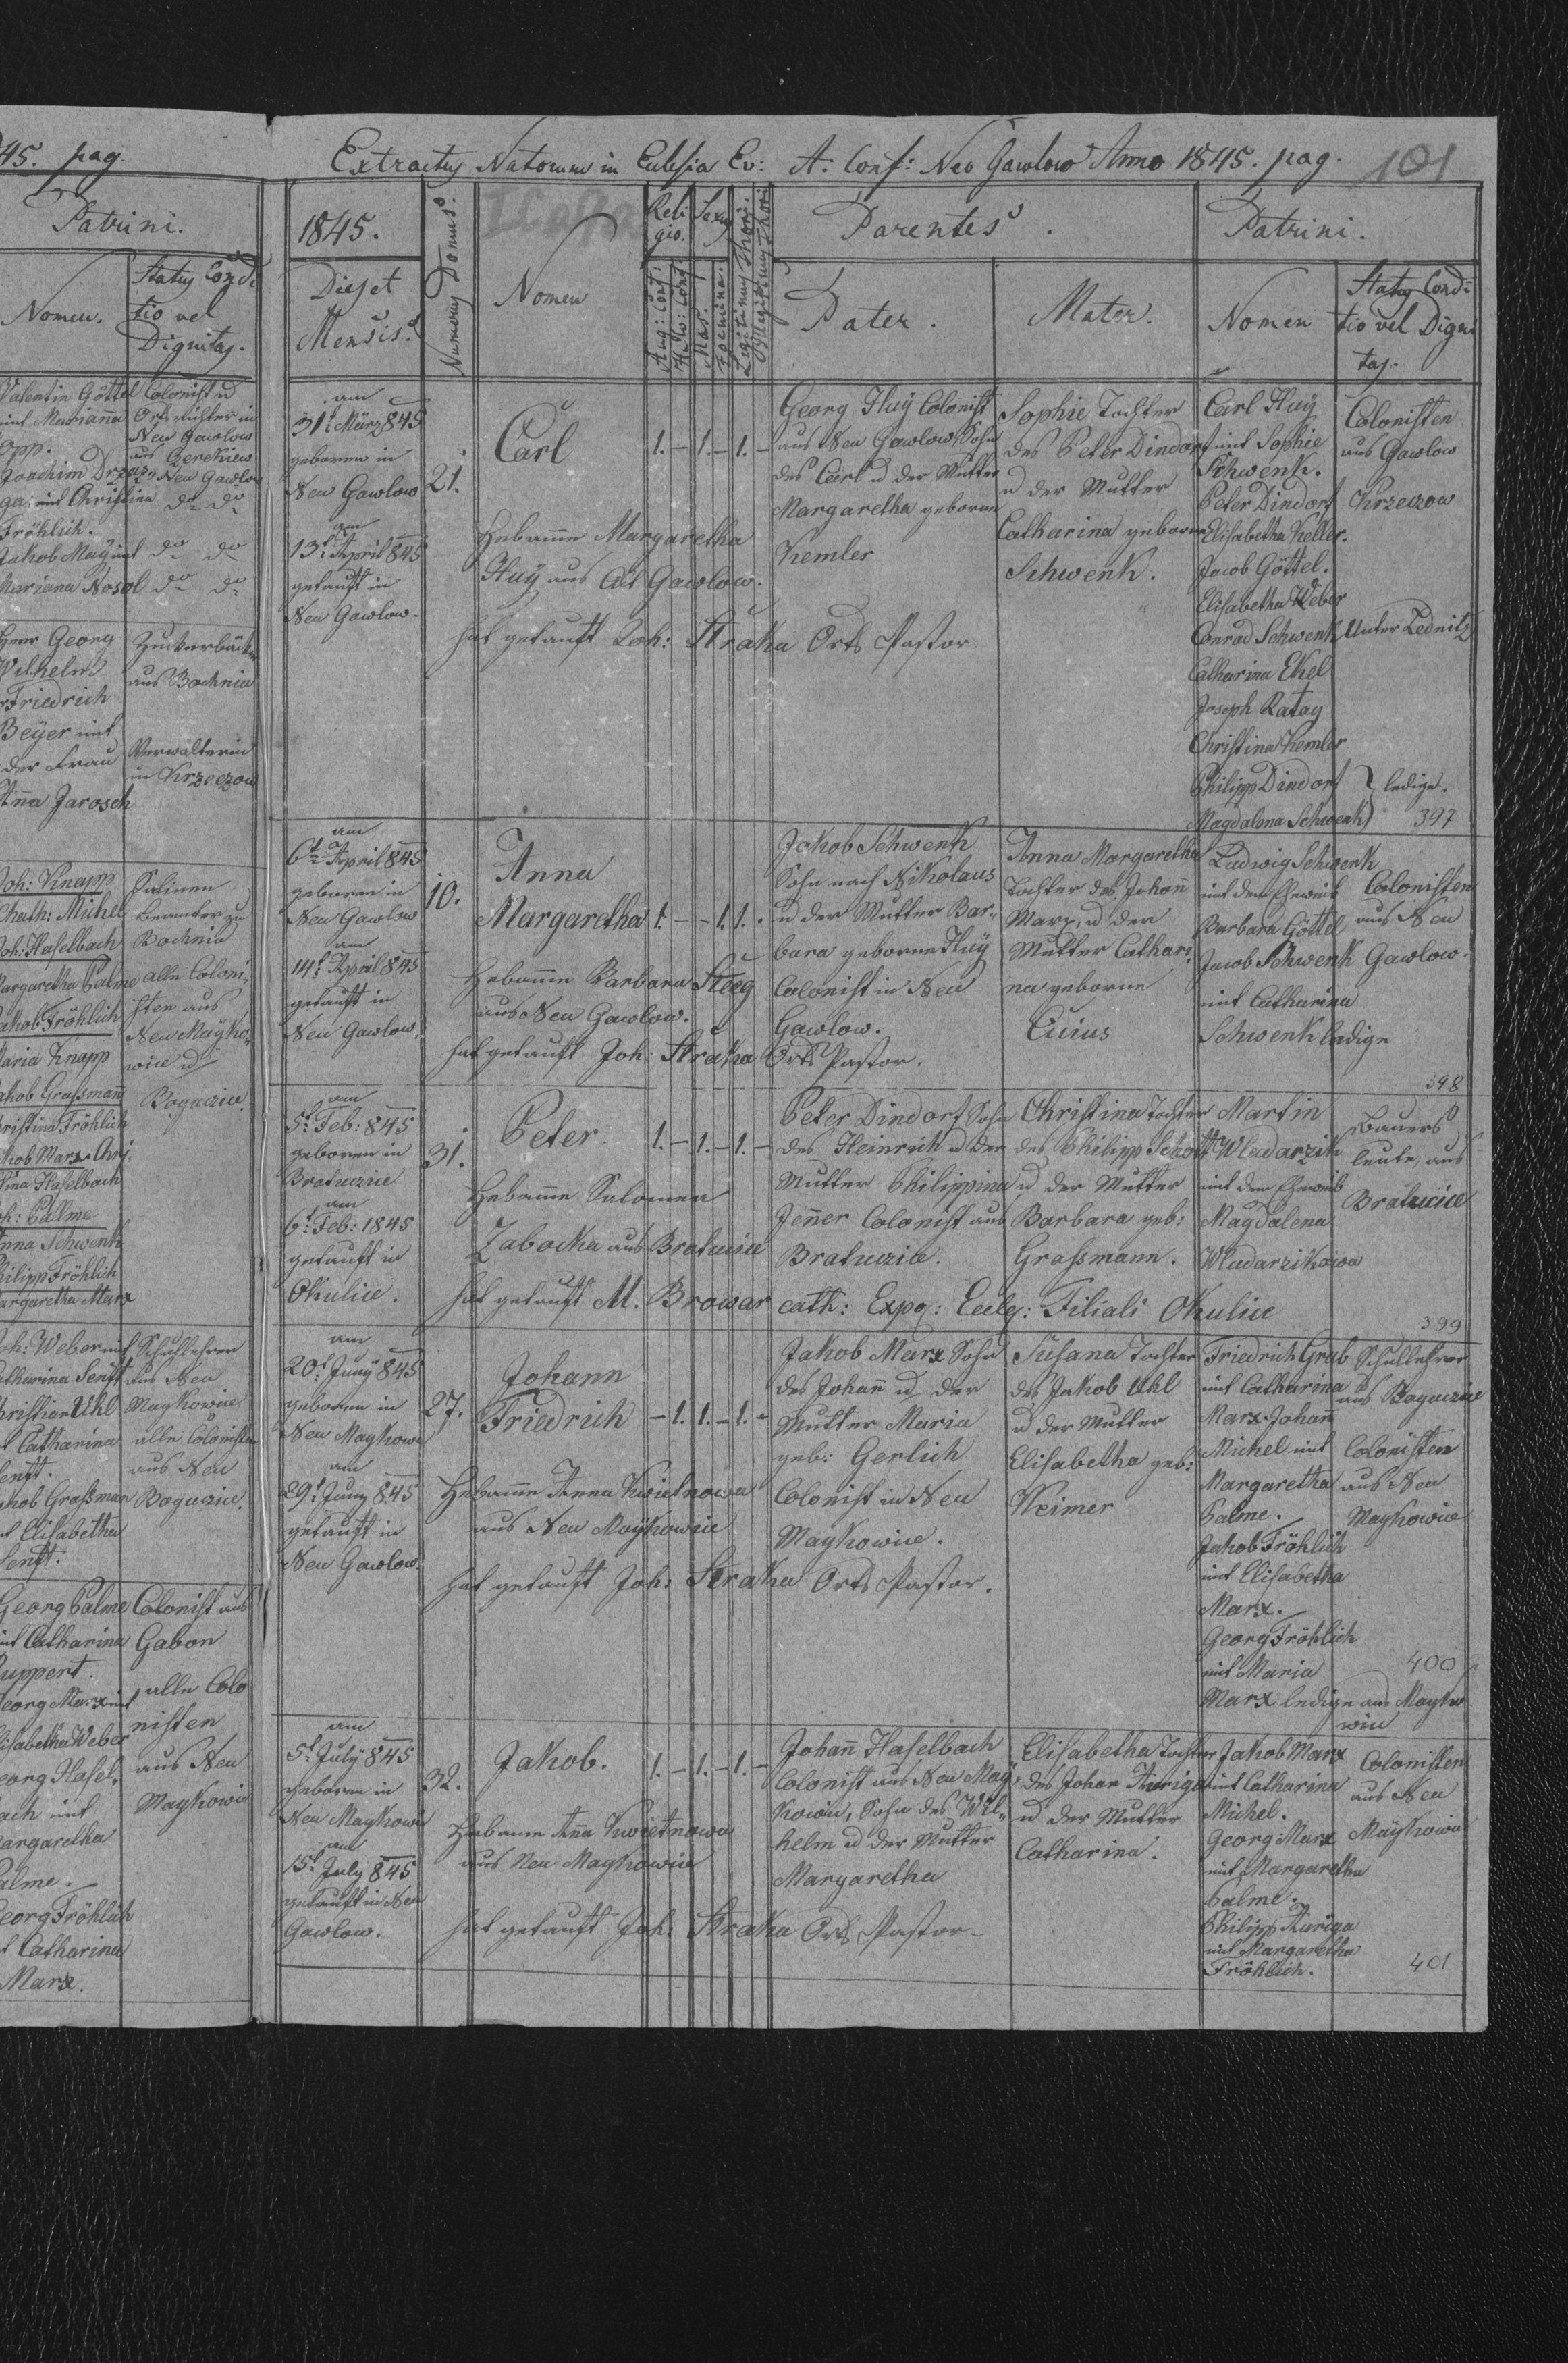 45. pag.
Patrini.
Nomen.
Status Condi
tio vel
Dignitas.
Valentin Göttel
mit Marianna
Opp.
Joachim Drza
ga, mit Christina
Fröhlich.
Jakob May mit
Mariana Nosol
Colonist u
Ortsrichter in
Neu Gawlow
aus Gerekiew
Neu Gawlow
do do
do do
do do
Herr Georg
Wilhelm
Friedrich
Beÿer mit
der Frau
Anna Jarosch
Zuckerbäcker
aus Bochnia
Verwalterin
in Krzeczow
Joh: Knapp
Chath: Michel
Joh: Haselbach
Margaretha Palme
Jakob Fröhlich
Maria Knapp
Jakob Grassmañ
Christina Fröhlich
Jakob Marx Chri
stina Haselbach
Joh: Palme
Anna Schwenk
Philipp Fröhlich
Margaretha Marx
Salinen
Beamter zu
Bochnia
alle Coloni
sten aus
Neu Maÿko
wice u
Bogucice.
Joh: Weber mit
Catharina Senft
Christian Uhl
mit Catharina
Senft.
Jakob Grassman
mit Elisabetha
Senft.
Schullehrer
aus Neu
Maykowice
alle Colonisten
aus Neu
Bogucice.
Georg Palme
mit Catharina
Ruppert.
Georg Marx mit
Elisabetha Weber
Georg Hasel
bach mit
Margaretha
Palme.
Georg Fröhlich
mit Catharina
Marx.
Colonist aus
Gabon
alle Colo
nisten
aus Neu
Maykowie
Extractus Natorum in Eclesia Ev: A. Conf: Neo Gawlow Anno 1845. pag. 101
1845.
Dies et
Mensis.
Numerus Domus.
Nomen
Reli
gio.
Aug: Conf:
Helv: Conf:
Sexus
Mas.
Foemina.
Legitimus Thori.
Illegitimus Thori
Parentes.
Pater.
Mater.
Patrini.
Nomen
Status Condi
tio vel Digni
tas.
am
31t März 845
geboren in
Neu Gawlow
am
13t April 845
getauft in
Neu Gawlow.
21.
Carl
1. – 1. – 1. –
Hebame Margaretha
Huÿ aus Alt Gawlow.
hat getauft Joh: Straka Orts Pastor
Georg Huÿ Colonist
aus Neu Gawlow Sohn
des Carl u der Mutter
Margaretha geborne
Kemler
Sophie Tochter
des Peter Dindorf
u der Mutter
Catharina geborne
Schwenk.
Carl Huÿ
mit Sophie
Schwenk.
Peter Dindorf
Elisabetha Keller.
Jacob Göttel.
Elisabetha Weber
Conrad Schwenk
Catharina Ekel
Joseph Ratay
Christina Kemler
Philipp Dindorf
Magdalena Schwenk
Colonisten
aus Gawlow
Krzeczow
Unter Lednitz
ledige.
397
am
6t April 845
geboren in
Neu Gawlow
am
14t April 845
getauft in
Neu Gawlow.
10.
Anna
Margaretha 1. – – 1. 1. –
Hebame Barbara Steeg
aus Neu Gawlow.
hat getauft Joh: Straka Orts Pastor.
Jakob Schwenk
Sohn nach Nikolaus
u der Mutter Bar-
bara geborne Huÿ
Colonist in Neu
Gawlow.
Anna Margaretha
Tochter des Johañ
Marx, u der
Mutter Cathari
na geborne
Cuius
Ludwig Schwenk
mit dem Eheweib
Barbara Göttel
Jacob Schwenk
mit Catharina
Schwenk ledige
Colonisten
aus Neu
Gawlow.
398
am
5t Feb: 845
geboren in
Bratucice
am
6t Feb: 1845
getauft in
Okulice.
31.
Peter 1. – 1. – 1. –
Hebame Salomea
Zabocka aus Bratucice
hat getauft M. Browar cath: Expo: Eclg: Filiali Okulice
Peter Dindorf Sohn
des Heinrich u der
Mutter Philippina
Jenner Colonist aus
Bratucice.
Christina Tochter
des Philipp Schott
u der Mutter
Barbara geb:
Grassmann.
Martin
Wladarzik
mit dem Eheweib
Magdalena
Wladarzikowa
Bauers
leute, aus
Bratucice
399
am
20t Juny 845
geboren in
Neu Maykowi
am
29t Juny 845
getauft in
Neu Gawlow.
27.
Johann
Friedrich – 1. 1. – 1. –
Hebame Anna Kwietnowa
aus Neu Maÿkowice
hat getauft Joh: Straka Orts Pastor.
Jakob Marx Sohn
des Johañ u der
Mutter Maria
geb: Gerlich
Colonist in Neu
Maykowice.
Susana Tochter
des Jakob Uhl
u der Mutter
Elisabetha geb:
Weimer
Friedrich Grub
mit Catharina
Marx. Johañ
Michel mit
Margaretha
Palme.
Jakob Fröhlich
mit Elisabetha
Marx.
Georg Fröhlich
mit Maria
Marx ledige aus Mayko
wice
Schullehrer
aus Bogucice
Colonisten
aus Neu
Maykowice
400
am
5t July 845
geboren in
Neu Maykowi
am
15t July 845
getauft in Neu
Gawlow.
32.
Jakob. 1. – 1. – 1. –
Hebame Aña Kwietnowa
aus Neu Maykowice
hat getauft Joh: Straka Orts Pastor.
Johañ Haselbach
Colonist aus Neu Maÿ
kowice, Sohn des Wil-
helm u der Mutter
Margaretha
Elisabetha Tochter
des Johan Auriga
u der Mutter
Catharina.
Jakob Marx
mit Catharina
Michel.
Georg Marx
mit Margaretha
Palme.
Philipp Auriga
mit Margaretha
Fröhlich.
Colonisten
aus Neu
Maÿkowie
401